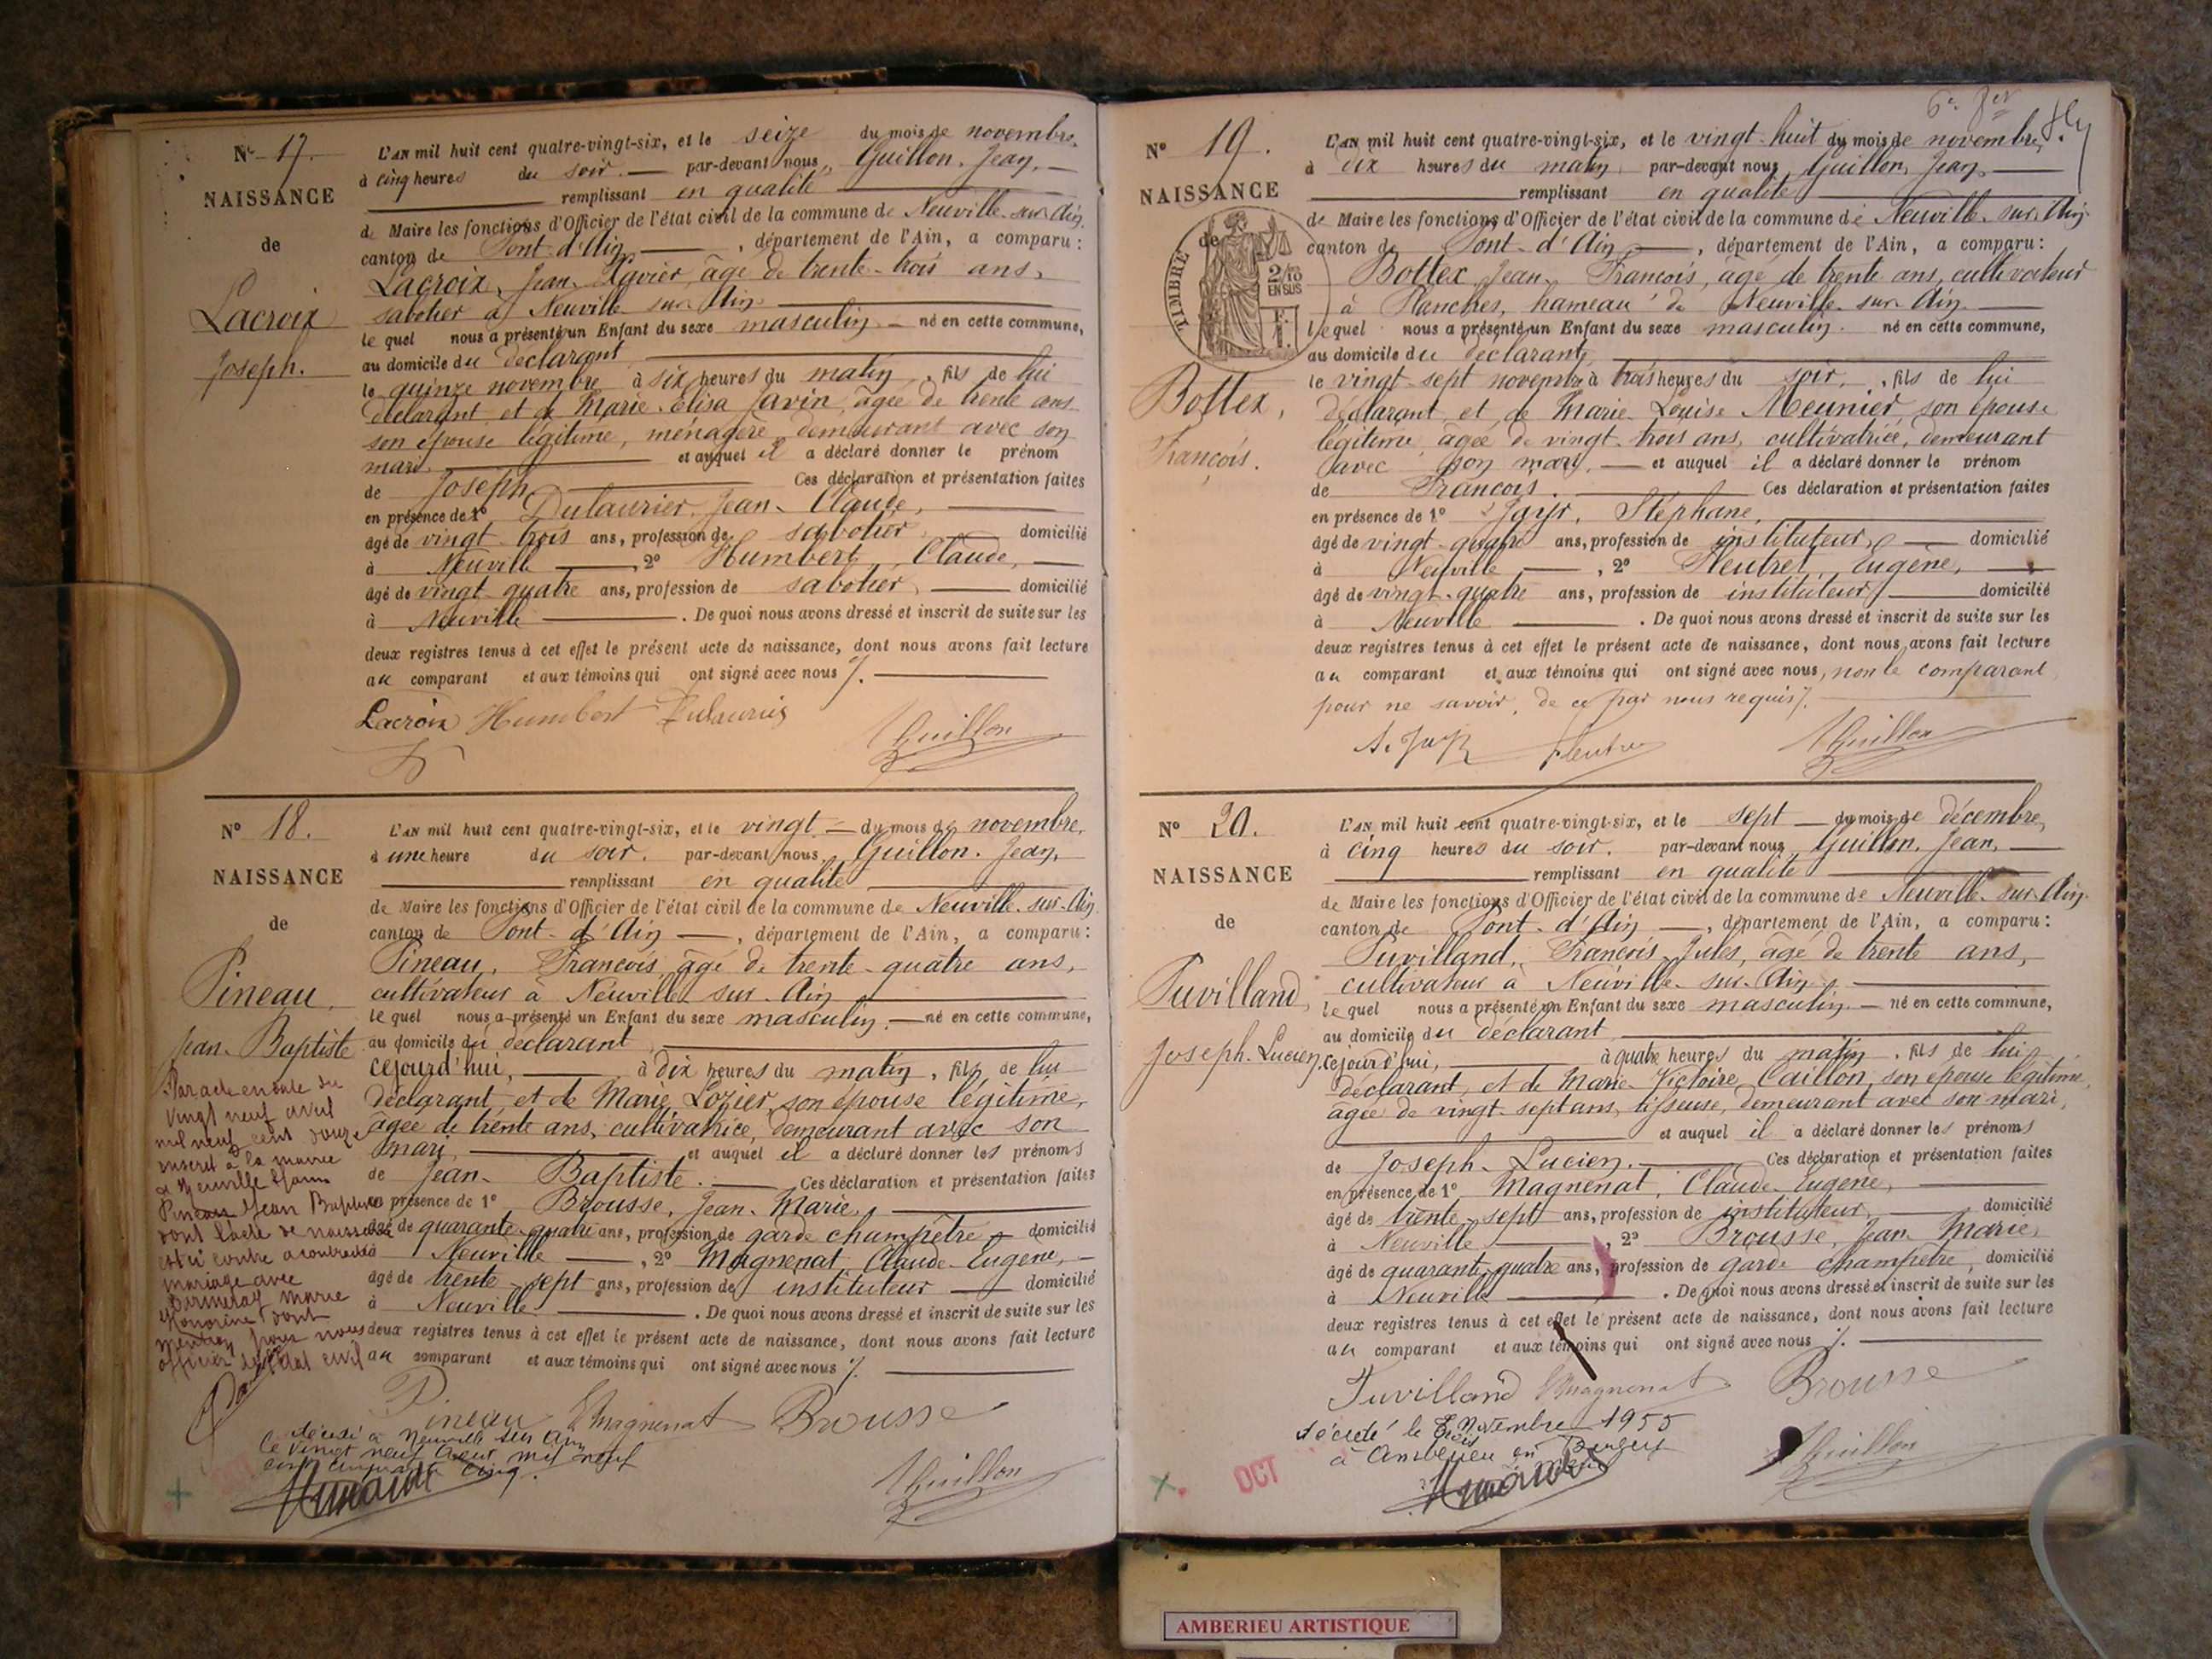 Nº 17.
NAISSANCE
de
Lacroix
Joseph.
L'AN mil huit cent quatre-vingt-six, et le seize du mois de novembre,
à cinq heures du soir. par-devant nous, Guillon, Jean,
remplissant en qualité
de Maire les fonctions d'Officier de l'état civil de la commune de Neuville-sur-Ain,
canton de Pont-d'Ain, département de l'Ain, a comparu:
Lacroix, Jean-Xavier, âgé de trente-trois ans,
sabotier à Neuville sur Ain
lequel nous a présenté un Enfant du sexe masculin, né en cette commune,
au domicile du déclarant,
le quinze novembre à six heures du matin, fils de lui
déclarant et de Marie-Elisa Javin, âgée de trente ans
son épouse légitime, ménagère demeurant avec son
mari, et auquel il a déclaré donner le prénom
de Joseph. Ces déclaration et présentation faites
en présence de 1º Dulaurier, Jean-Claude,
âgé de vingt-trois ans, profession de sabotier, domicilié
à Neuville, 2º Humbert, Claude,
âgé de vingt-quatre ans, profession de sabotier, domicilié
à Neuville. De quoi nous avons dressé et inscrit de suite sur les
deux registres tenus à cet effet le présent acte de naissance, dont nous avons fait lecture
au comparant et aux témoins qui ont signé avec nous ./.
Lacroix Humbert Dulaurier
JGuillon
Nº 18.
NAISSANCE
de
Pineau,
Jean-Baptiste
L'AN mil huit cent quatre-vingt-six, et le vingt du mois de novembre,
à une heure du soir. par-devant nous, Guillon, Jean,
remplissant en qualité
de Maire les fonctions d'Officier de l'état civil de la commune de Neuville-sur-Ain,
canton de Pont-d'Ain, département de l'Ain, a comparu:
Pineau, François, âgé de trente-quatre ans,
cultivateur à Neuville-sur-Ain
lequel nous a présenté un Enfant du sexe masculin, né en cette commune,
au domicile du déclarant
cejourd'hui, à dix heures du matin, fils de lui
déclarant et de Marie Lozier, son épouse légitime,
âgée de trente ans, cultivatrice, demeurant avec son
mari, et auquel il a déclaré donner les prénoms
de Jean-Baptiste. Ces déclaration et présentation faites
en présence de 1º Brousse, Jean-Marie,
âgé de quarante-quatre ans, profession de garde champêtre, domicilié
à Neuville, 2º Magnenat, Claude-Eugène,
âgé de trente-sept ans, profession de instituteur domicilié
à Neuville. De quoi nous avons dressé et inscrit de suite sur les
deux registres tenus à cet effet le présent acte de naissance, dont nous avons fait lecture
au comparant et aux témoins qui ont signé avec nous ./.
Par acte en date du
vingt neuf avril
mil neuf cent douze
inscrit à la mairie
de Neuville s/ Ain
Pineau Jean Baptiste
dont l'acte de naissance
est ci contre a contracté
mariage avec
Marie
Honorine dont
mention par nous
officier de l'état civil
Pineau EMagnenat Brousse
JGuillon
décédé à Neuville sur Ain
le vingt neuf mil neuf
cent cinquante cinq.
Nº 19.
NAISSANCE
de
TIMBRE
2/10
EN SUS
Bottex,
François.
L'AN mil huit cent quatre-vingt-six, et le vingt-huit du mois de novembre,
à dix heures du matin, par-devant nous, Guillon, Jean,
remplissant en qualité
de Maire les fonctions d'Officier de l'état civil de la commune de Neuville-sur-Ain
canton de Pont-d'Ain, département de l'Ain, a comparu:
Bottex, Jean-François, âgé de trente ans, cultivateur
à Planches, hameau de Neuville-sur-Ain
lequel nous a présenté un Enfant du sexe masculin. né en cette commune,
au domicile du déclarant,
le vingt-sept novembre à trois heures du soir, fils de lui
déclarant et de Marie-Louise Meunier, son épouse
légitime, âgée de vingt-trois ans, cultivatrice, demeurant
avec son mari, et auquel il a déclaré donner le prénom
de François. Ces déclaration et présentation faites
en présence de 1º Jayr, Stéphane,
âgé de vingt-quatre ans, profession de instituteur, domicilié
à Neuville, 2º Pleutret, Eugène,
âgé de vingt-quatre ans, profession de instituteur, domicilié
à Neuville. De quoi nous avons dressé et inscrit de suite sur les
deux registres tenus à cet effet le présent acte de naissance, dont nous avons fait lecture
au comparant et aux témoins qui ont signé avec nous, non le comparant
pour ne savoir, de ce par nous requis ./.
S. Jayr Pleutret JGuillon
Nº 20.
NAISSANCE
de
Puvilland,
Joseph-Lucien.
L'AN mil huit cent quatre-vingt-six, et le sept du mois de décembre,
à cinq heures du soir. par-devant nous, Guillon, Jean,
remplissant en qualité
de Maire les fonctions d'Officier de l'état civil de la commune de Neuville-sur-Ain
canton de Pont-d'Ain, département de l'Ain, a comparu:
Puvilland, François-Jules, âgé de trente ans,
cultivateur à Neuville-sur-Ain,
lequel nous a présenté un Enfant du sexe masculin né en cette commune,
au domicile du déclarant
cejourd'hui, à quatre heures du matin, fils de lui
déclarant, et de Marie-Victoire Caillon, son épouse légitime,
âgée de vingt-sept ans, tisseuse, demeurant avec son mari,
et auquel il a déclaré donner les prénoms
de Joseph-Lucien. Ces déclaration et présentation faites
en présence de 1º Magnenat, Claude-Eugène,
âgé de trente-sept ans, profession de instituteur, domicilié
à Neuville, 2º Brousse, Jean-Marie,
âgé de quarante-quatre ans, profession de garde champêtre, domicilié
à Neuville. De quoi nous avons dressé et inscrit de suite sur les
deux registres tenus à cet effet le présent acte de naissance, dont nous avons fait lecture
au comparant et aux témoins qui ont signé avec nous ./.
Puvilland EMagnenat Brousse
décédé le trois Novembre 1955
à Ambérieu en Bugey
JGuillon
OCT
AMBERIEU ARTISTIQUE